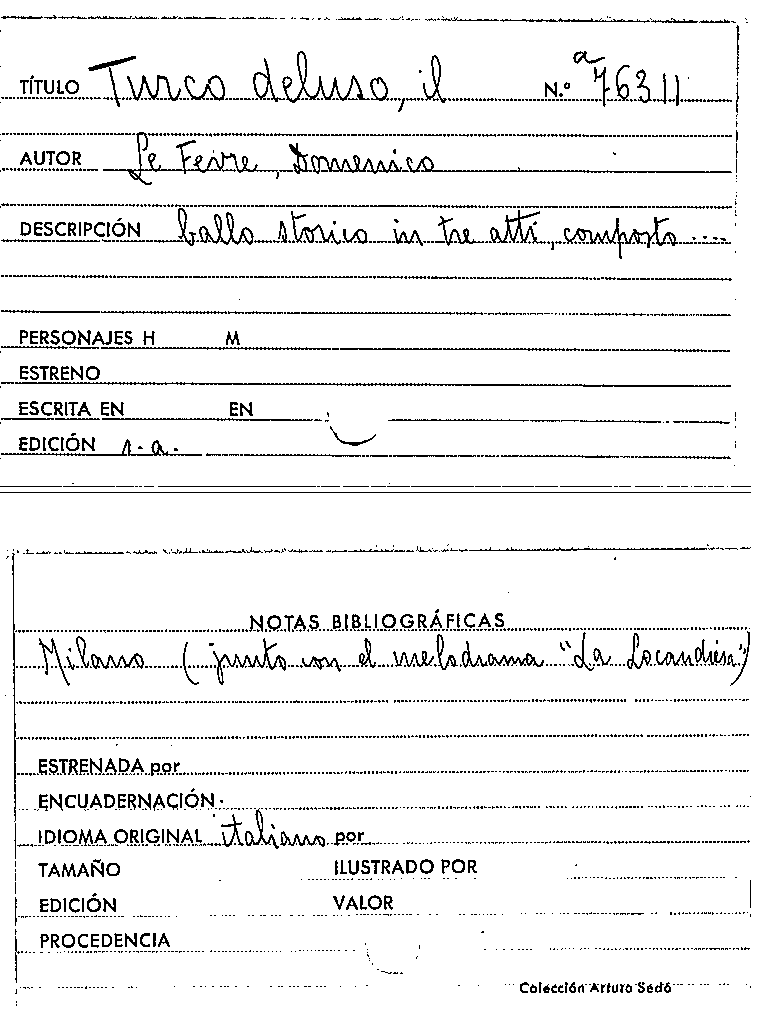 TÍTULO Turco deluso, il N.º a 76311
AUTOR Le Fevre, Domenico
DESCRIPCIÓN ballo storico in tre atti, composto ....
PERSONAJES H M
ESTRENO
ESCRITA EN EN
EDICIÓN s.a.
NOTAS BIBLIOGRÁFICAS
Milano (junto con el melodrama "La Locandiera")
ESTRENADA por
ENCUADERNACIÓN
IDIOMA ORIGINAL italiano por
TAMAÑO ILUSTRADO POR
EDICIÓN VALOR
PROCEDENCIA
Colección Arturo Sedó